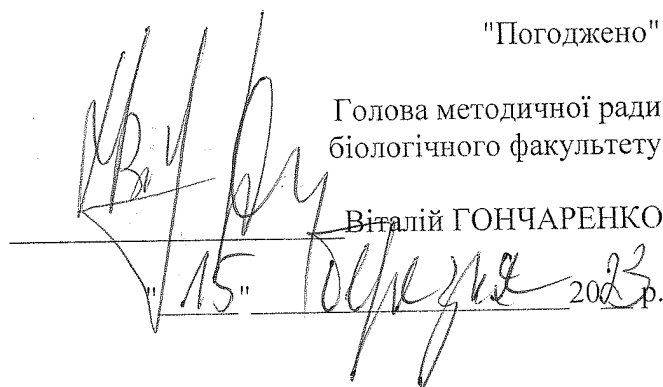 "Погоджено"
Голова методичної ради
біологічного факультету
Віталій ГОНЧАРЕНКО
"15" березня 2023 р.